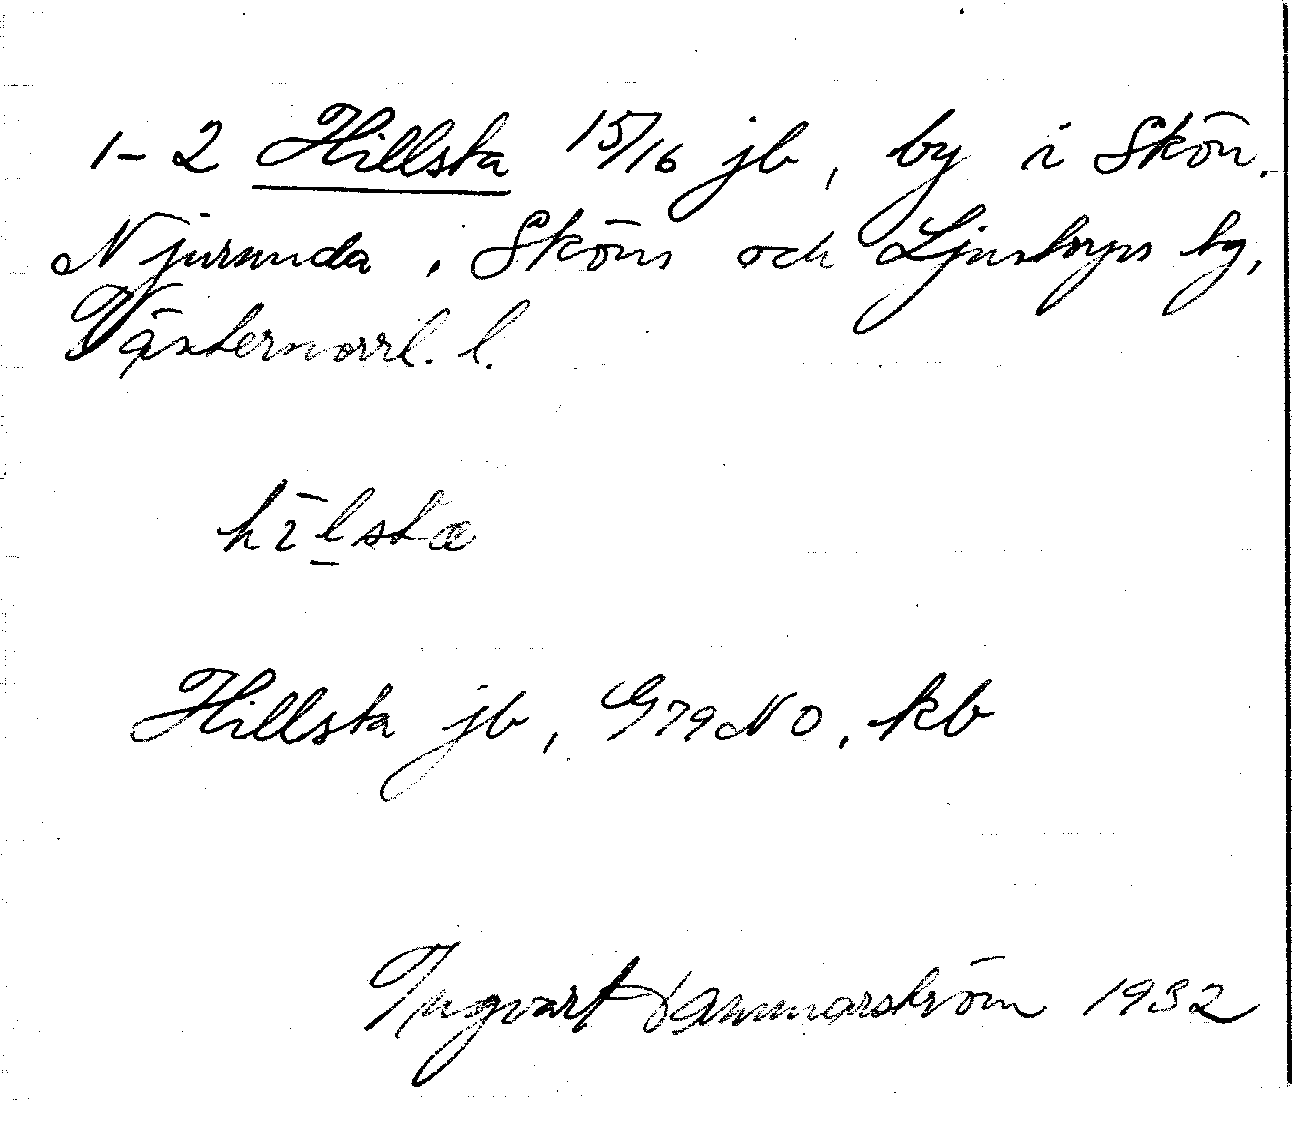 1-2 Hillsta 15/16 jb, by i Skön.
Njurunda, Sköns och Ljustorps tg,
Västernorrl. l.
hīl̲sta
Hillsta jb, G79NO, kb
Ingvart Hammarström 1932